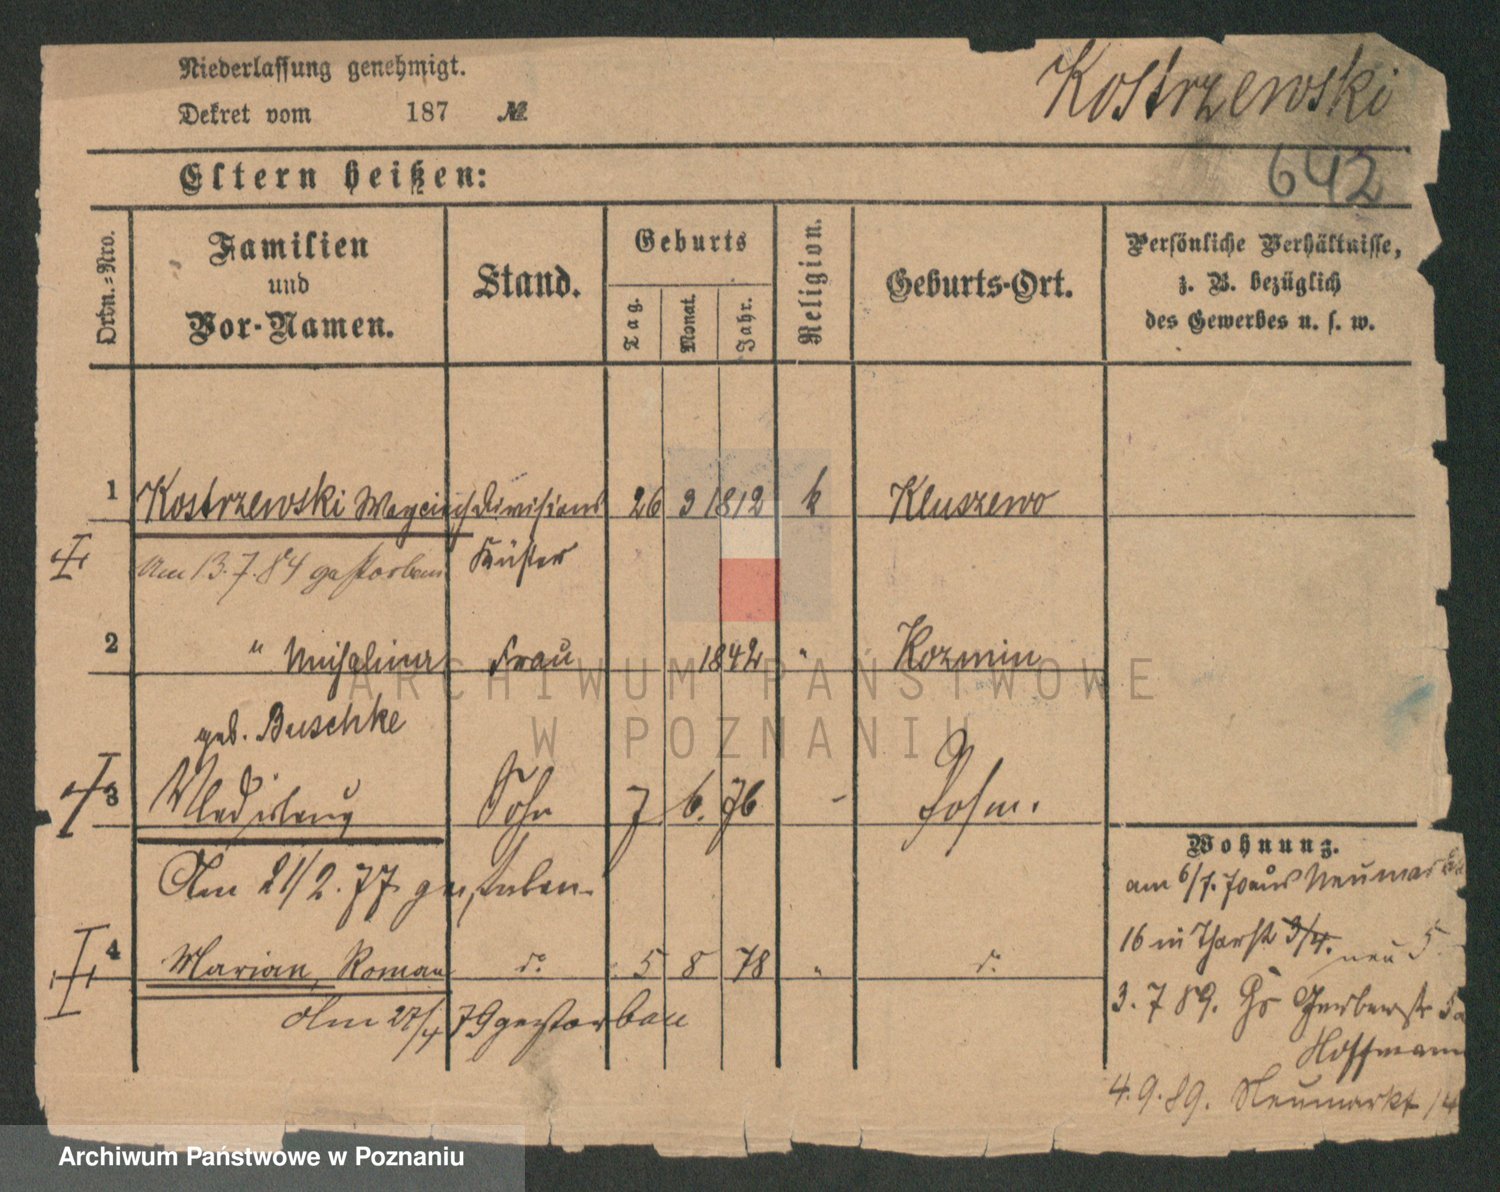 Niederlassung genehmigt.
Dekret vom 187 №
Kostrzewski
642
Eltern heißen:
Ordn.-Nro.
Familien
und
Vor-Namen.
Stand.
Geburts
Tag.
Monat.
Jahr.
Religion.
Geburts-Ort.
Persönliche Verhältnisse,
z. B. bezüglich
des Gewerbes u. s. w.
1 Kostrzewski Divisions 26 3 1812 k Kluszewo
Am 13.7.84 gestorben Küster
2 " Frau 1842 " Kozmin
geb. Buschke
3 Wladislaus Sohn 7 6. 76 - Posen.
Am 21/2. 77 gestorben.
4 Marian, Roman do 5 8 78 " do
Am 27/4 79 gestorben
Wohnung.
am 6/7. 70 aus Neumarkt
16 in 3/4. neu 5.
3. 7 89. Gerberstr
Hoffmann
4. 9. 89. Neumarkt 14
ARCHIWUM PAŃSTWOWE
W POZNANIU
Archiwum Państwowe w Poznaniu